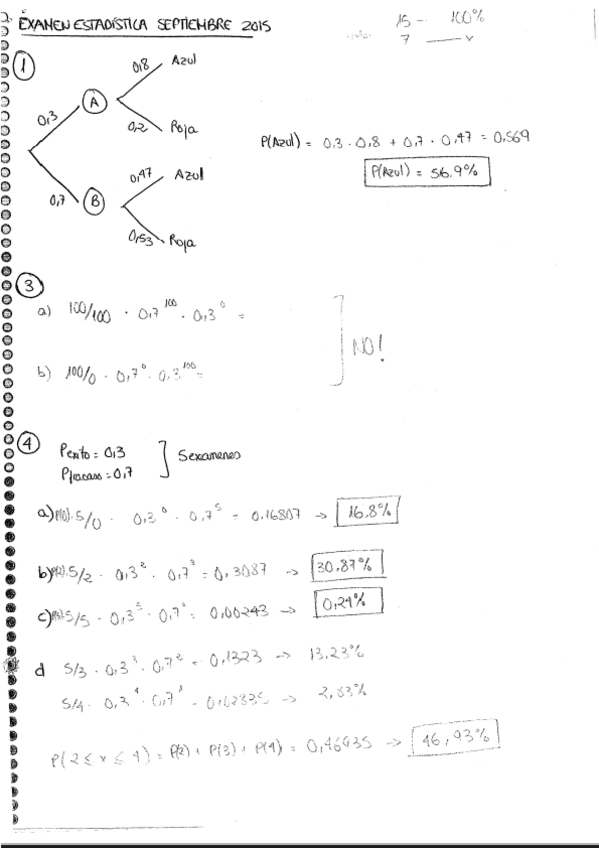 EXAMEN ESTADÍSTICA SEPTIEMBRE 2015
15 - 100%
7 — x
1
0,3 A 0,8 Azul
0,2 Roja
0,7 B 0,47 Azul
0,53 Roja
P(Azul) = 0,3 · 0,8 + 0,7 · 0,47 = 0,569
P(Azul) = 56,9%
3
a) 100/100 · 0,7^100 · 0,3^0 =
b) 100/0 · 0,7^0 · 0,3^100 =
NO!
4
Pexito = 0,3
Pfracaso = 0,7
5 examenes
a) P(0) · 5/0 · 0,3^0 · 0,7^5 = 0,16807 → 16,8%
b) P(2) · 5/2 · 0,3^2 · 0,7^3 = 0,3087 → 30,87%
c) P(5) · 5/5 · 0,3^5 · 0,7^0 = 0,00243 → 0,24%
d 5/3 · 0,3^3 · 0,7^2 = 0,1323 → 13,23%
5/4 · 0,3^4 · 0,7^1 = 0,02835 → 2,83%
P(2 ≤ x ≤ 4) = P(2) + P(3) + P(4) = 0,46935 → 46,93%